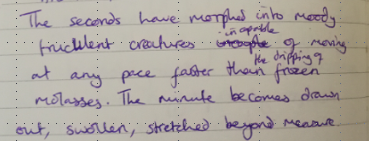 The seconds have morphed into moody
truculent creatures incapable of moving
at any pace faster than the dripping of frozen
molasses. The minute becomes drawn
out, swollen, stretched beyond measure